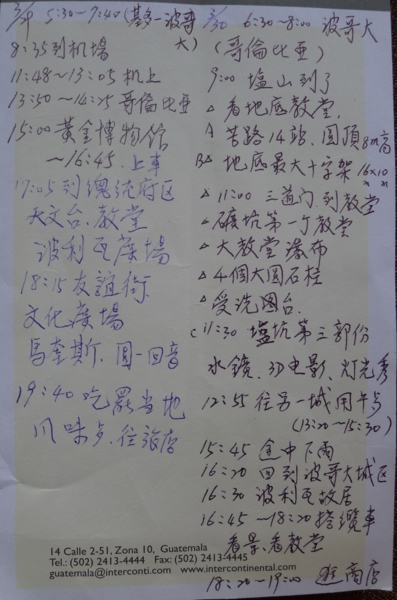 3/29 5:30~7:40 (基多-波哥大)
8:35到机場
11:48~13:05 机上
13:50~14:25 哥倫比亞
15:00 黃金博物館
~16:45. 上車
17:05 到總統府区
天文台. 教堂
波利瓦廣場
18:15 友誼街
文化廣場
馬奎斯. 圆一回音
19:40 吃罷当地
风味歺. 往旅店
3/30 6:30~8:00 波哥大
(哥倫比亞)
9:00 塩山到了
△ 看地底教堂.
A 苦路14站. 圆頂 8m高
B△ 地底最大十字架 16x10 m m
△ 11:00 三道门 到教堂
△ 礦坑第一个教堂
△ 大教堂 瀑布
△ 4個大圆石柱
△ 受洗圆台.
C 11:30 塩坑第三部份
水鏡. 3D电影. 灯光秀
12:55 往另一城用午歺
(13:20~15:30)
15:45 途中下雨
16:20 回到波哥大城区
16:30 波利瓦故居
16:45 ~18:20 搭纜車
看景. 看教堂
18:20~19:00 逛商店
14 Calle 2-51, Zona 10, Guatemala
Tel.: (502) 2413-4444 Fax: (502) 2413-4445
guatemala@interconti.com www.intercontinental.com